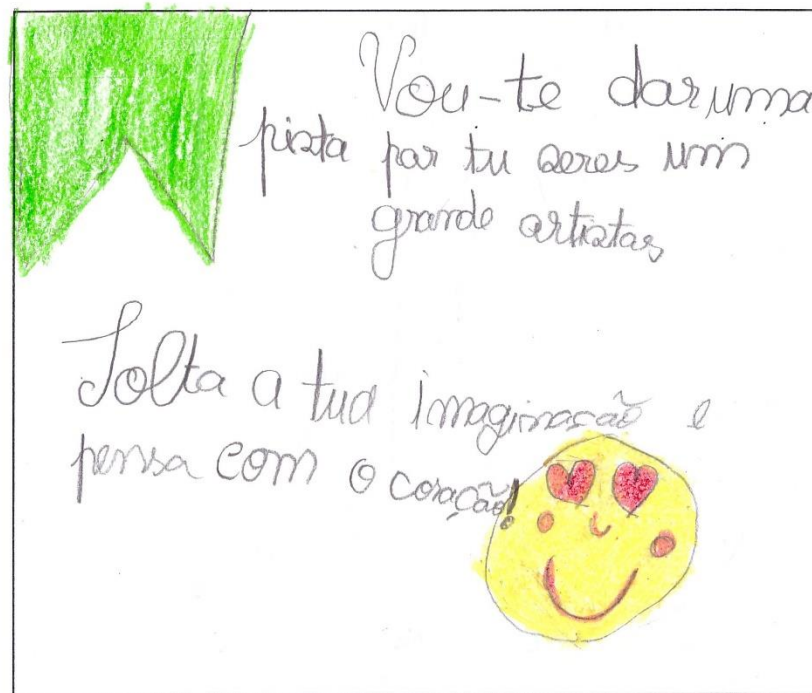 Vou-te dar uma
pista par tu seres um
grande artistas
Solta a tua imaginação e
pensa com o coração!